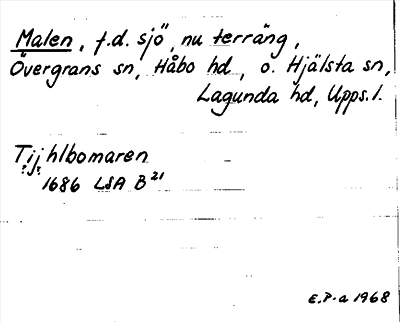 Malen, f.d. sjö, nu terräng,
Övergrans sn, Håbo hd, o. Hjälsta sn,
Lagunda hd, Upps. l.
Tijhlbomaren
1686 LSA B²¹
E.P-a 1968